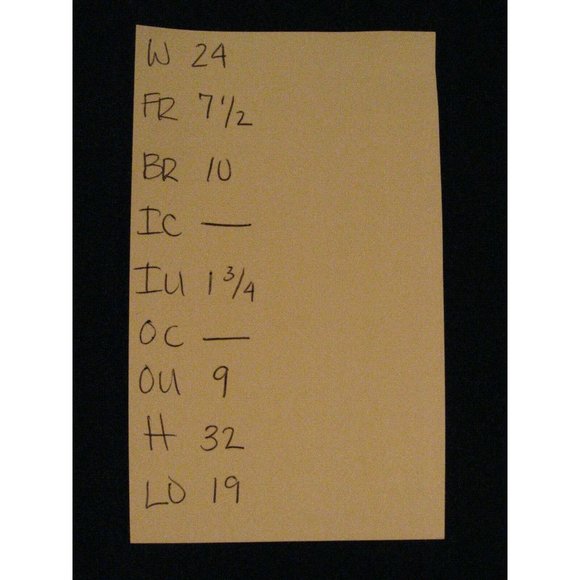 W 24
FR 7 1/2
BR 10
IC —
IU 1 3/4
OC —
OU 9
H 32
LO 19